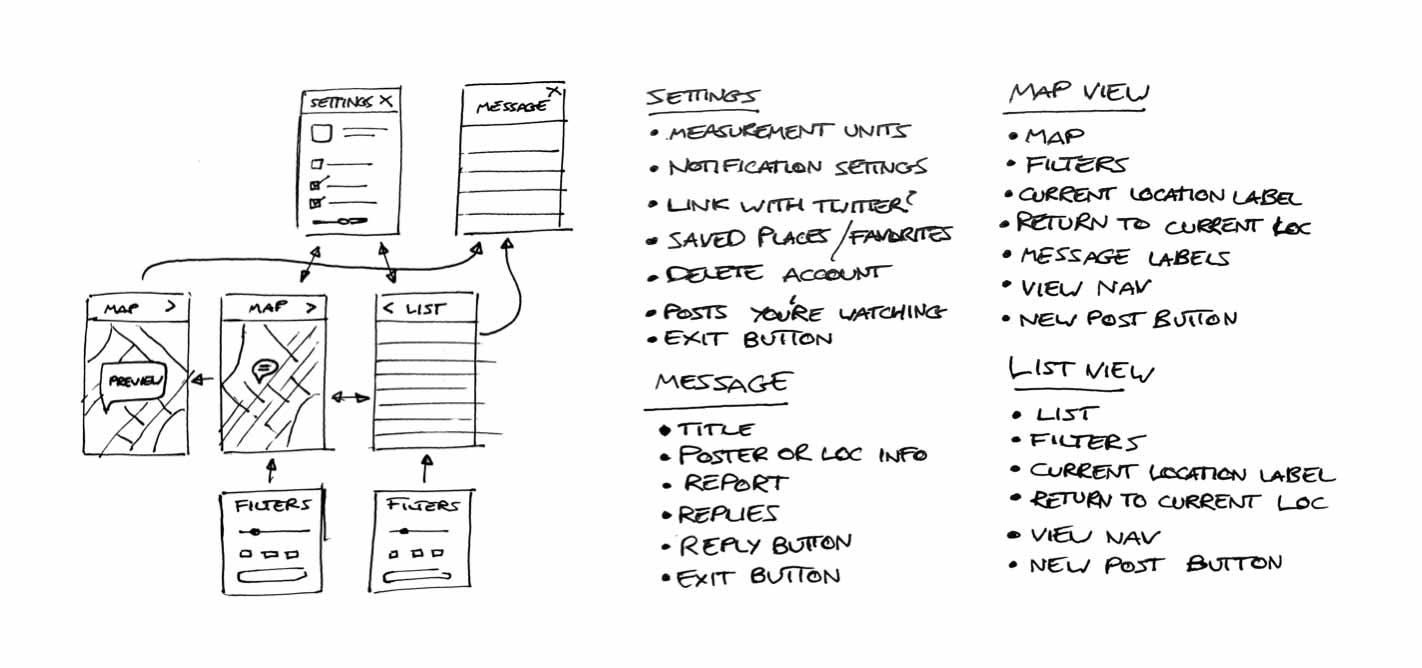 SETTINGS X
MESSAGE X
MAP >
PREVIEW
MAP >
< LIST
FILTERS
FILTERS
SETTINGS
• MEASUREMENT UNITS
• NOTIFICATION SETINGS
• LINK WITH TWITTER?
• SAVED PLACES/FAVORITES
• DELETE ACCOUNT
• POSTS YOU'RE WATCHING
• EXIT BUTTON
MESSAGE
• TITLE
• POSTER OR LOC INFO
• REPORT
• REPLIES
• REPLY BUTTON
• EXIT BUTTON
MAP VIEW
• MAP
• FILTERS
• CURRENT LOCATION LABEL
• RETURN TO CURRENT LOC
• MESSAGE LABELS
• VIEW NAV
• NEW POST BUTTON
LIST VIEW
• LIST
• FILTERS
• CURRENT LOCATION LABEL
• RETURN TO CURRENT LOC
• VIEW NAV
• NEW POST BUTTON